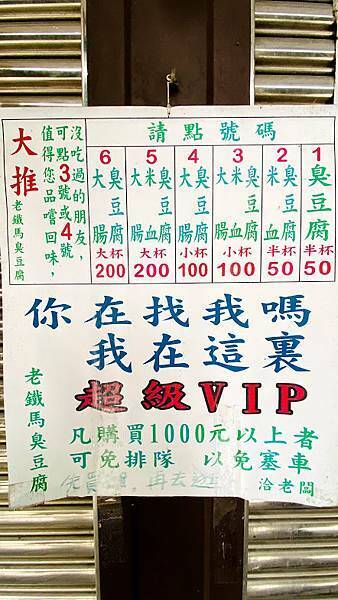 請點號碼
1
臭豆腐
半杯
50
2
臭豆腐
米血
半杯
50
3
臭豆腐
米血
大腸
小杯
100
4
臭豆腐
大腸
小杯
100
5
臭豆腐
米血
大腸
大杯
200
6
臭豆腐
大腸
大杯
200
沒吃過的朋友,
可點3號或4號
值得您品嚐回味,
大推
老鐵馬臭豆腐
你在找我嗎
我在這裏
超級VIP
凡購買1000元以上者
可免排隊 以免塞車
洽老闆
老鐵馬臭豆腐
再去逛